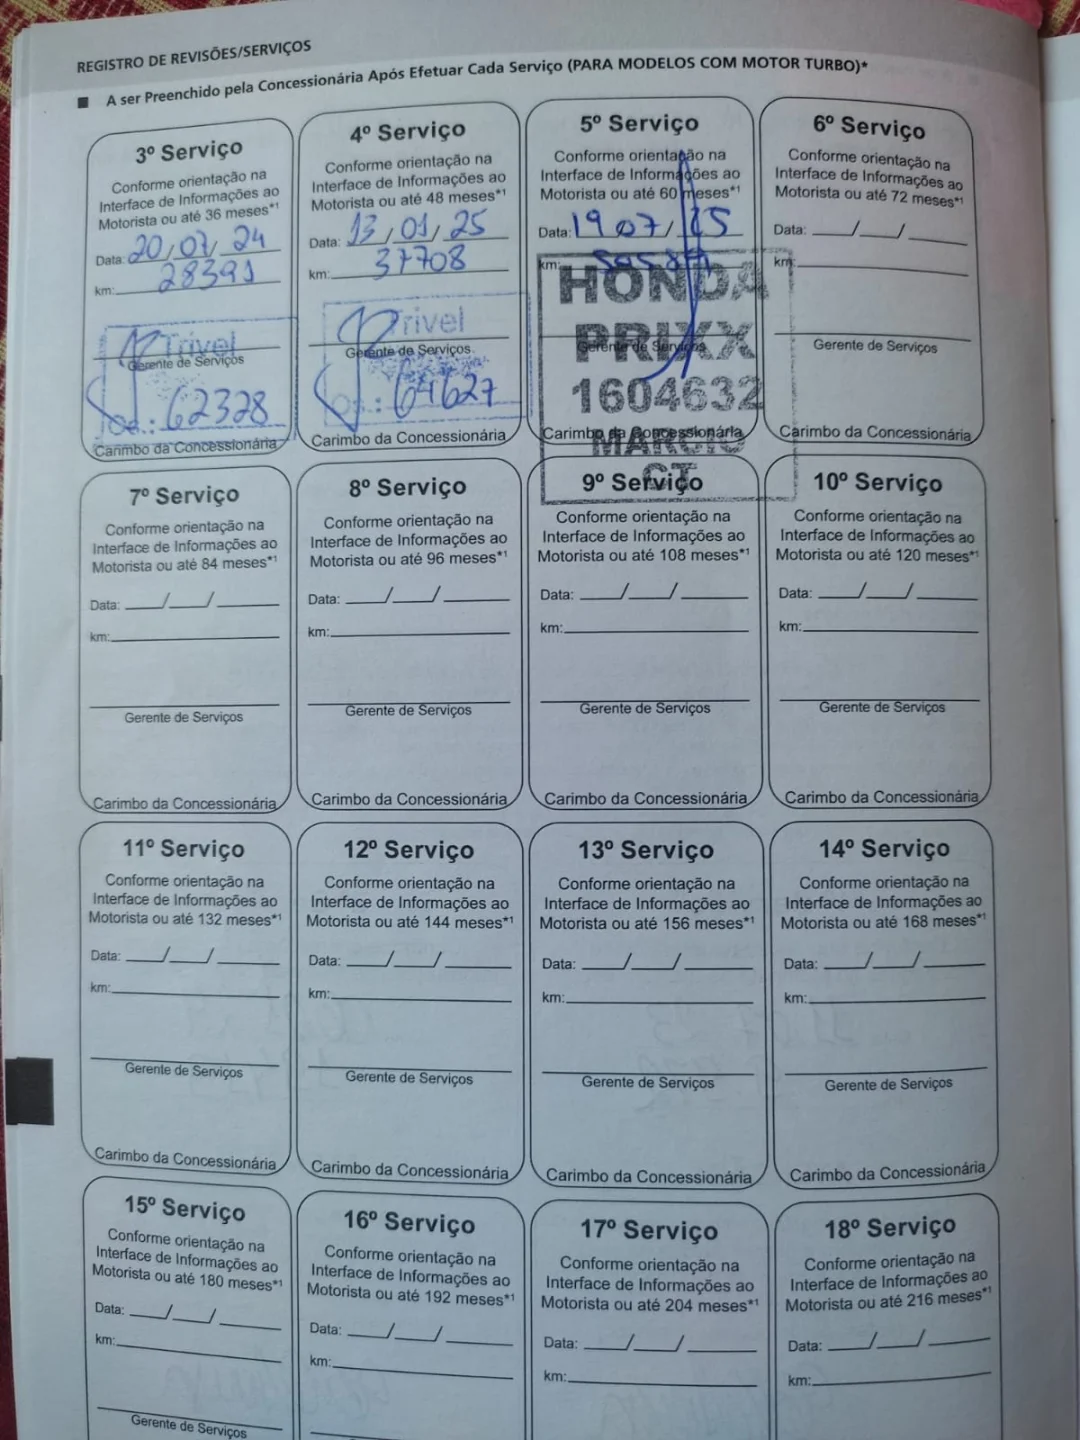 REGISTRO DE REVISÕES/SERVIÇOS
A ser Preenchido pela Concessionária Após Efetuar Cada Serviço (PARA MODELOS COM MOTOR TURBO)*
3º Serviço
Conforme orientação na
Interface de Informações ao
Motorista ou até 36 meses*1
Data: 20/01/24
km: 28391
Trivel
Gerente de Serviços
62328
Carimbo da Concessionária
4º Serviço
Conforme orientação na
Interface de Informações ao
Motorista ou até 48 meses*1
Data: 13/01/25
km: 37708
Trivel
Gerente de Serviços
64627
Carimbo da Concessionária
5º Serviço
Conforme orientação na
Interface de Informações ao
Motorista ou até 60 meses*1
Data: 19 07/25
km:
HONDA
PRIXX
Gerente de Serviços
1604632
Carimbo da Concessionária
MARCIO
CT
6º Serviço
Conforme orientação na
Interface de Informações ao
Motorista ou até 72 meses*1
Data: __/__/____
km:
Gerente de Serviços
Carimbo da Concessionária
7º Serviço
Conforme orientação na
Interface de Informações ao
Motorista ou até 84 meses*1
Data: __/__/____
km:
Gerente de Serviços
Carimbo da Concessionária
8º Serviço
Conforme orientação na
Interface de Informações ao
Motorista ou até 96 meses*1
Data: __/__/____
km:
Gerente de Serviços
Carimbo da Concessionária
9º Serviço
Conforme orientação na
Interface de Informações ao
Motorista ou até 108 meses*1
Data: __/__/____
km:
Gerente de Serviços
Carimbo da Concessionária
10º Serviço
Conforme orientação na
Interface de Informações ao
Motorista ou até 120 meses*1
Data: __/__/____
km:
Gerente de Serviços
Carimbo da Concessionária
11º Serviço
Conforme orientação na
Interface de Informações ao
Motorista ou até 132 meses*1
Data: __/__/____
km:
Gerente de Serviços
Carimbo da Concessionária
12º Serviço
Conforme orientação na
Interface de Informações ao
Motorista ou até 144 meses*1
Data: __/__/____
km:
Gerente de Serviços
Carimbo da Concessionária
13º Serviço
Conforme orientação na
Interface de Informações ao
Motorista ou até 156 meses*1
Data: __/__/____
km:
Gerente de Serviços
Carimbo da Concessionária
14º Serviço
Conforme orientação na
Interface de Informações ao
Motorista ou até 168 meses*1
Data: __/__/____
km:
Gerente de Serviços
Carimbo da Concessionária
15º Serviço
Conforme orientação na
Interface de Informações ao
Motorista ou até 180 meses*1
Data: __/__/____
km:
Gerente de Serviços
16º Serviço
Conforme orientação na
Interface de Informações ao
Motorista ou até 192 meses*1
Data: __/__/____
km:
17º Serviço
Conforme orientação na
Interface de Informações ao
Motorista ou até 204 meses*1
Data: __/__/____
km:
18º Serviço
Conforme orientação na
Interface de Informações ao
Motorista ou até 216 meses*1
Data: __/__/____
km: